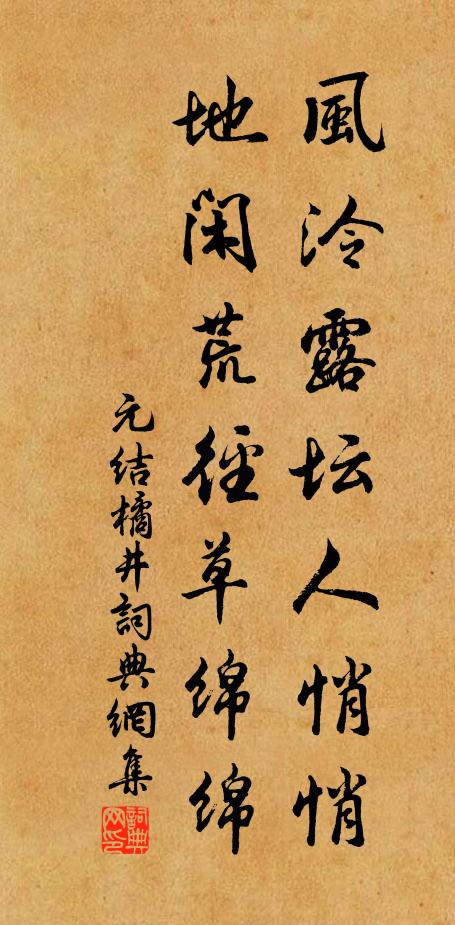 風泠露坛人悄悄
地闲荒徑草绵绵
元结橘井詞典網集
詞典网印